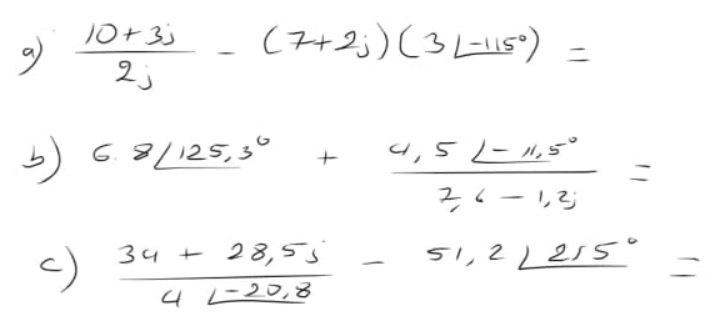 a) (10+3j)/(2j) - (7+2j)(3∠-115°) =
b) 6.8∠125,3° + (4,5∠-11,5°)/(7,6-1,2j) =
c) (34+28,5j)/(4∠-20,8) - 51,2∠215° =